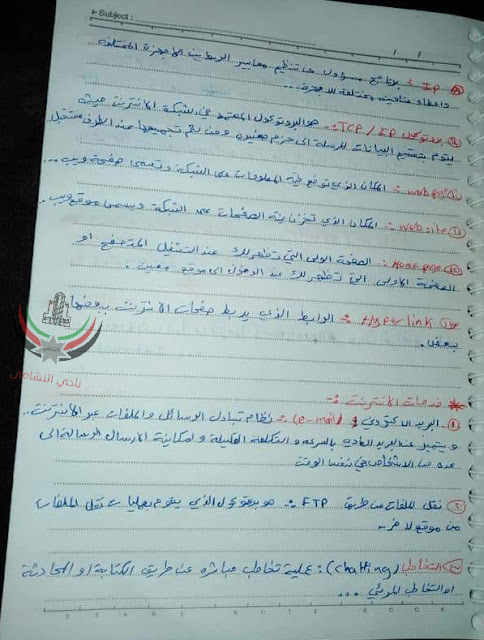 Subject :
IP : برنامج مسؤول عن تنظيم معايير الربط بين الأجهزة المختلفة
واعطاء عناوين مختلفة للاجهزة..
بروتوكول TCP / IP :. هو البروتوكول المعتمد في شبكة الانترنت حيث
يقوم بتقسيم البيانات المرسلة الى حزم صغيره ومن ثم تجميعها عند الطرف مستقبل
web page :. المكان الذي توضع فيه المعلومات على الشبكة وتسمى صفحة ويب...
web site :. المكان الذي تخزن فيه الصفحات على الشبكة ويسمى موقع ويب..
Home page :. الصفحة الاولى التي تظهر لك عند التشغيل المتصفح او
الصفحة الاولى التي تظهر لك عند الوصول الى موقع معين .
Hyper link :. الرابط الذي يربط صفحات الانترنت ببعضها
ببعض .
نادي النشامى
* خدمات الانترنت :-
① البريد الالكتروني (e-mail) :. نظام تبادل الرسائل والملفات عبر الانترنت..
و يتميز عن البريد العادي بالسرعه و التكلفة القليلة و امكانية الارسال الرسالة الى
عدد من الاشخاص في نفس الوقت
② نقل الملفات عن طريق FTP :. هو بروتوكول الذي يقوم بعمليات نقل الملفات
من موقع لاخر..
③ التخاطب (chatting) : عملية تخاطب مباشره عن طريق الكتابة او المحادثة
او التخاطب المرئي ...